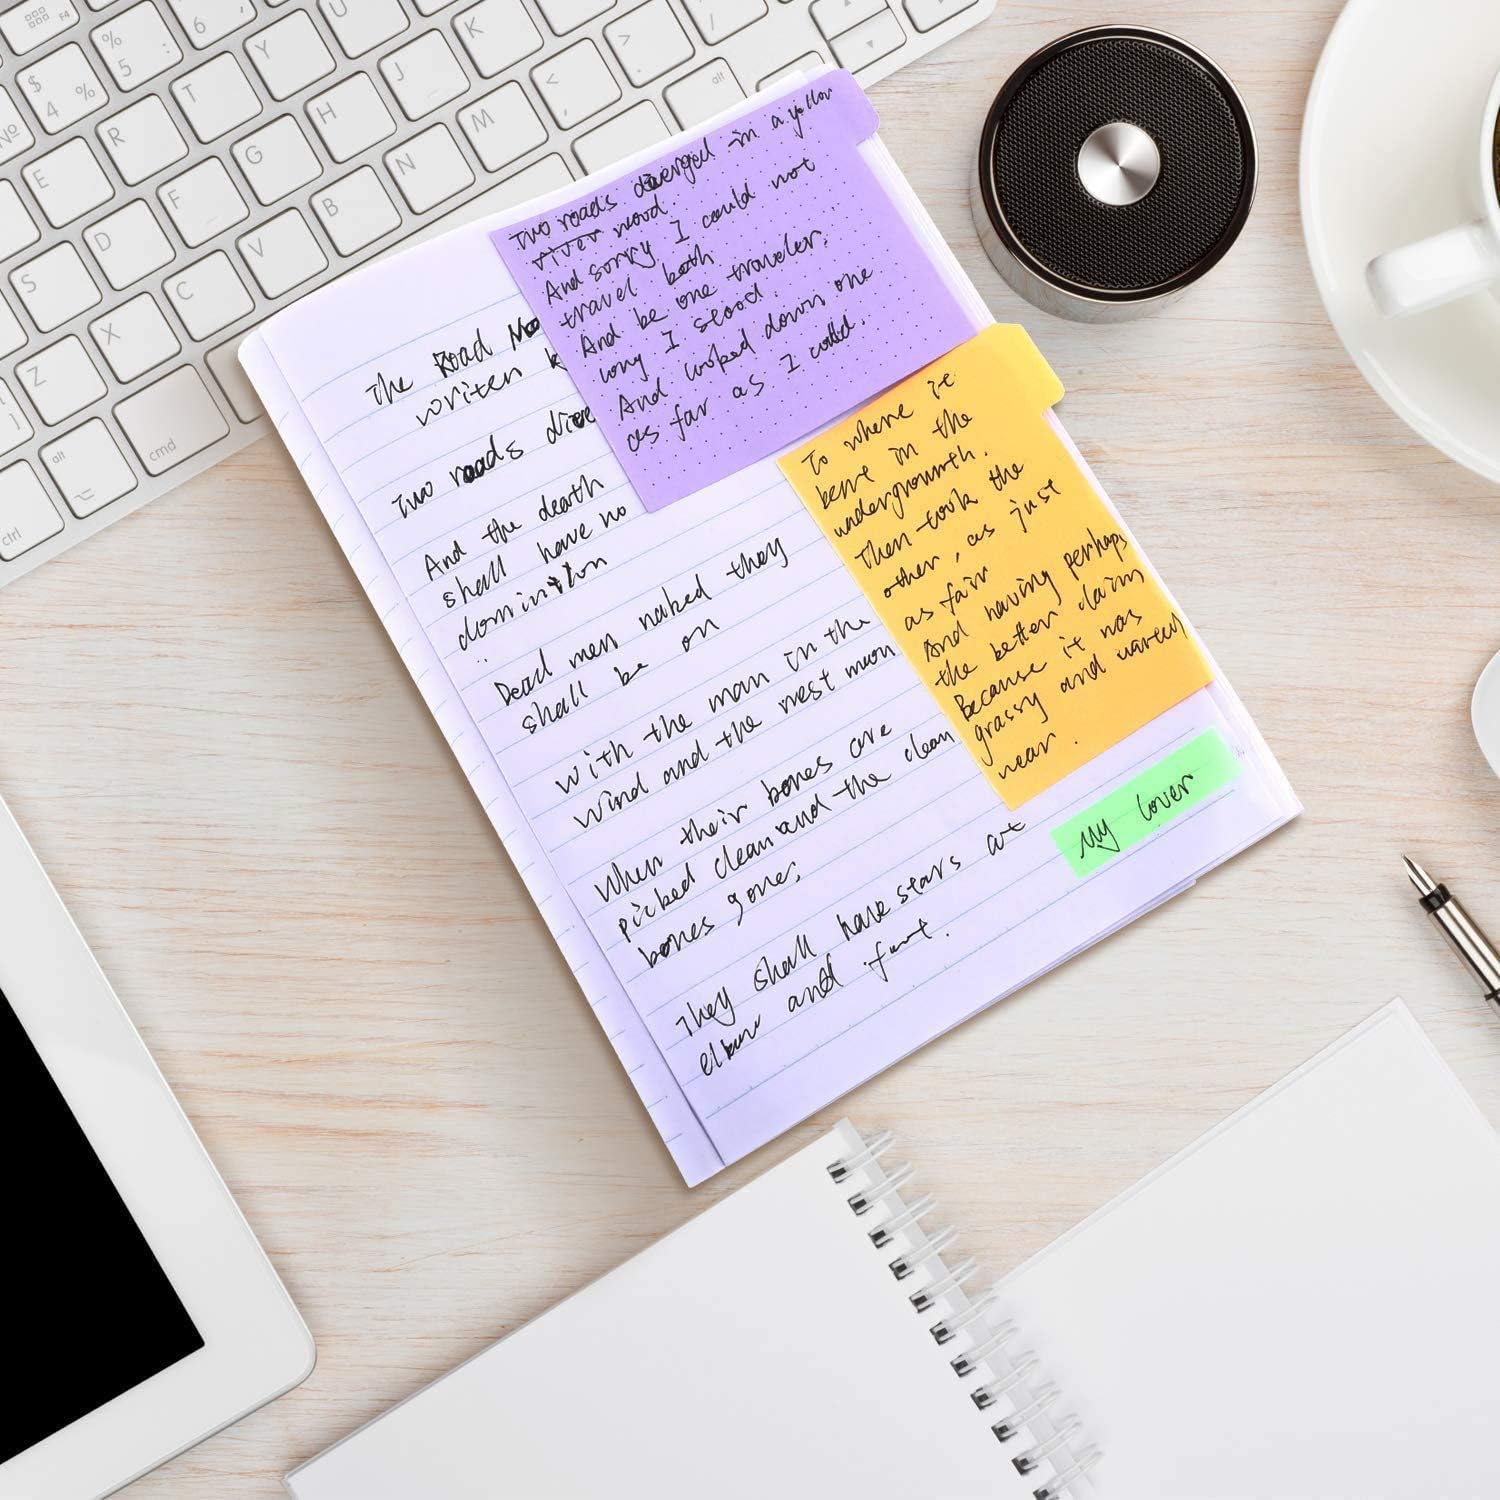 The Road No
writen
Two roads dive
And the death
shall have no
dominition
Dead men naked they
shall be on
with the man in the
wind and the west moon
When their bones are
picked clean and the clean
bones gone,
They shall have stars at
elbow and foot.
Two roads diverged in a yellow
river wood.
And sorry I could not
travel both
And be one traveler,
long I stood.
And looked down one
as far as I could.
To where it
bent in the
undergrowth.
Then took the
other, as just
as fair
And having perhaps
the better claim
Because it was
grassy and
near.
My lover
F4
%
5
:
6
$
4
%
№
R
T
Y
K
J
H
G
F
E
D
S
>
<
/
alt
M
N
B
V
C
X
Z
alt
cmd
ctrl